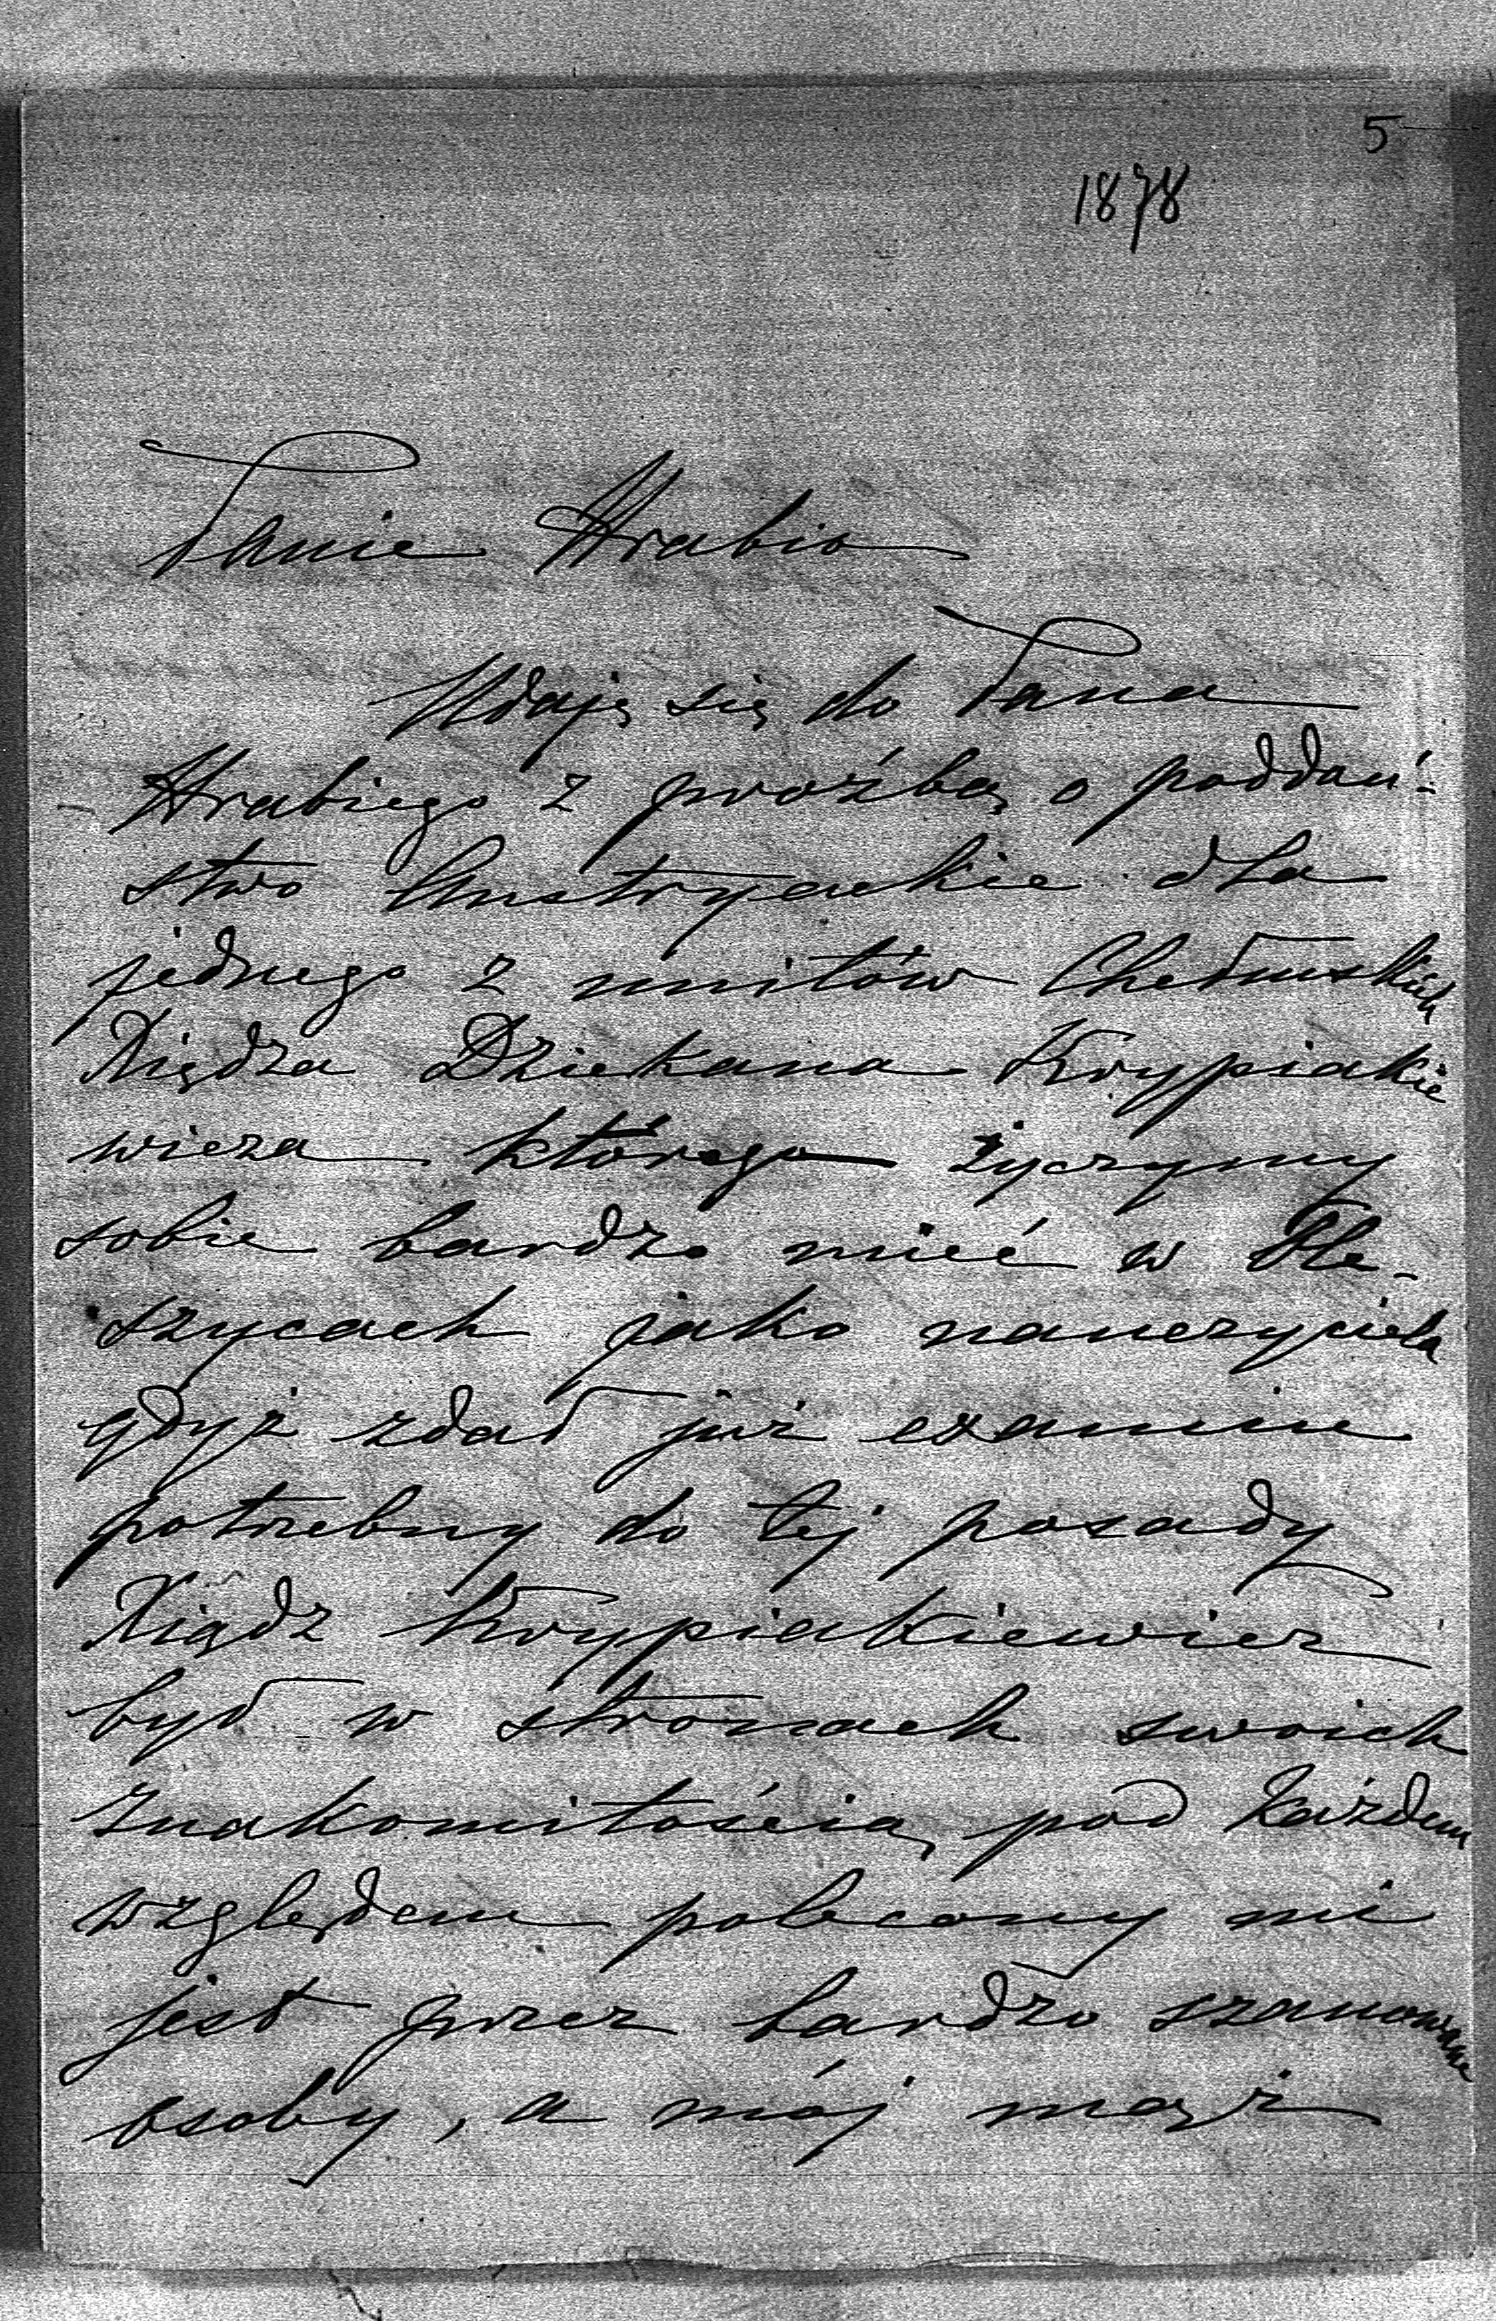 5
1878
Panie Hrabio
Udaję się do Pana
Hrabiego z proźbą o poddań-
stwo Austryackie dla
jednego z unitów Chełmskich
Xiędza Dziekana Krypiakie
wicza którego życzymy
sobie bardzo mieć w Ole-
szycach jako nauczyciela
gdyż zdał już examin
potrzebny do tej posady
Xiądz Krypiakiewicz
był w stronach swoich
znakomitością pod każdem
względem polecony mi
jest przez bardzo szanowane
osoby, a mój mąż